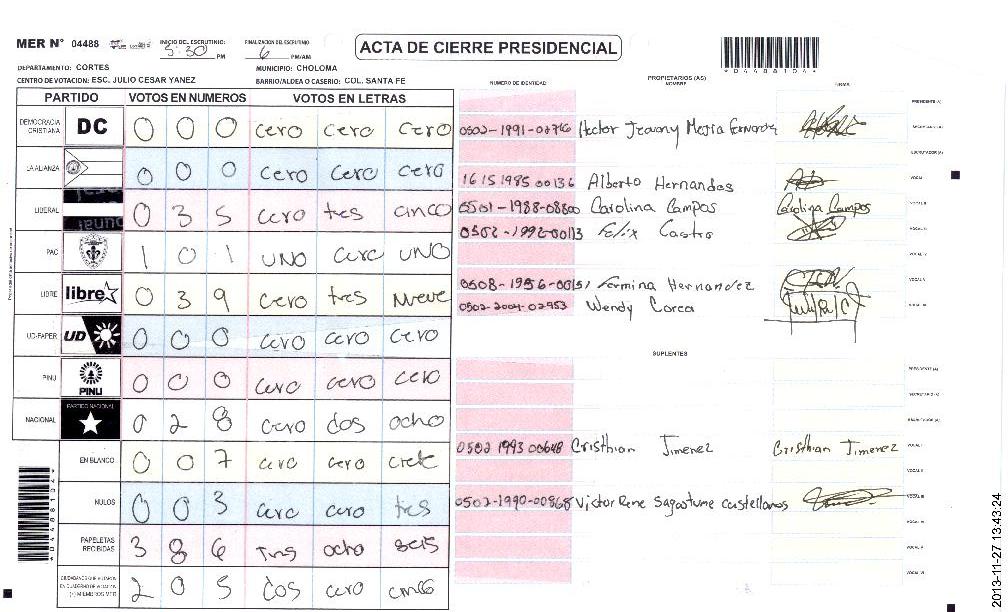 MER N° 04488 INICIO DEL ESCRUTINIO 5:30 PM FINALIZACION DEL ESCRUTINIO 6 PM/AM ACTA DE CIERRE PRESIDENCIAL
*04488104*
DEPARTAMENTO: CORTES MUNICIPIO: CHOLOMA
CENTRO DE VOTACION: ESC. JULIO CESAR YANEZ BARRIO/ALDEA O CASERIO: COL. SANTA FE
NUMERO DE IDENTIDAD PROPIETARIOS (AS) NOMBRE FIRMA
PARTIDO VOTOS EN NUMEROS VOTOS EN LETRAS
DEMOCRACIA CRISTIANA DC 0 0 0 cero cero cero
LA ALIANZA 0 0 0 cero cero cero
LIBERAL 0 3 5 cero tres cinco
PAC 1 0 1 UNO cero UNO
LIBRE libre 0 3 9 cero tres Nueve
UD-FAPER UD 0 0 0 cero cero cero
PINU PINU 0 0 0 cero cero cero
NACIONAL PARTIDO NACIONAL 0 2 8 cero dos ocho
EN BLANCO 0 0 7 cero cero
NULOS 0 0 3 cero cero tres
PAPELETAS RECIBIDAS 3 8 6 Tres ocho seis
CIUDADANOS QUE VOTARON EN CUADERNO DE VOTACION (+) MIEMBROS MER 2 0 5 dos cero cinco
PRESIDENTE (A)
0502-1991-02716 Hector Jeovany Mejia
SECRETARIO (A)
ESCRUTADOR (A)
1615 1985 00136 Alberto Hernandes VOCAL I
0501-1988-08800 Carolina Campos Carolina Campos VOCAL II
0502-1992-00113 Felix Castro VOCAL III
VOCAL IV
0508-1956-00151 Fermina Hernandez VOCAL V
0502-2004-02953 Wendy Corea VOCAL VI
SUPLENTES
PRESIDENTE (A)
SECRETARIO (A)
ESCRUTADOR (A)
0502 1993 00648 Cristhian Jimenez Cristhian Jimenez VOCAL I
VOCAL II
0502-1990-00868 Victor Rene Sagastume Castellanos VOCAL III
VOCAL IV
VOCAL V
VOCAL VI
*04488104*
2013-11-27 13:43:24